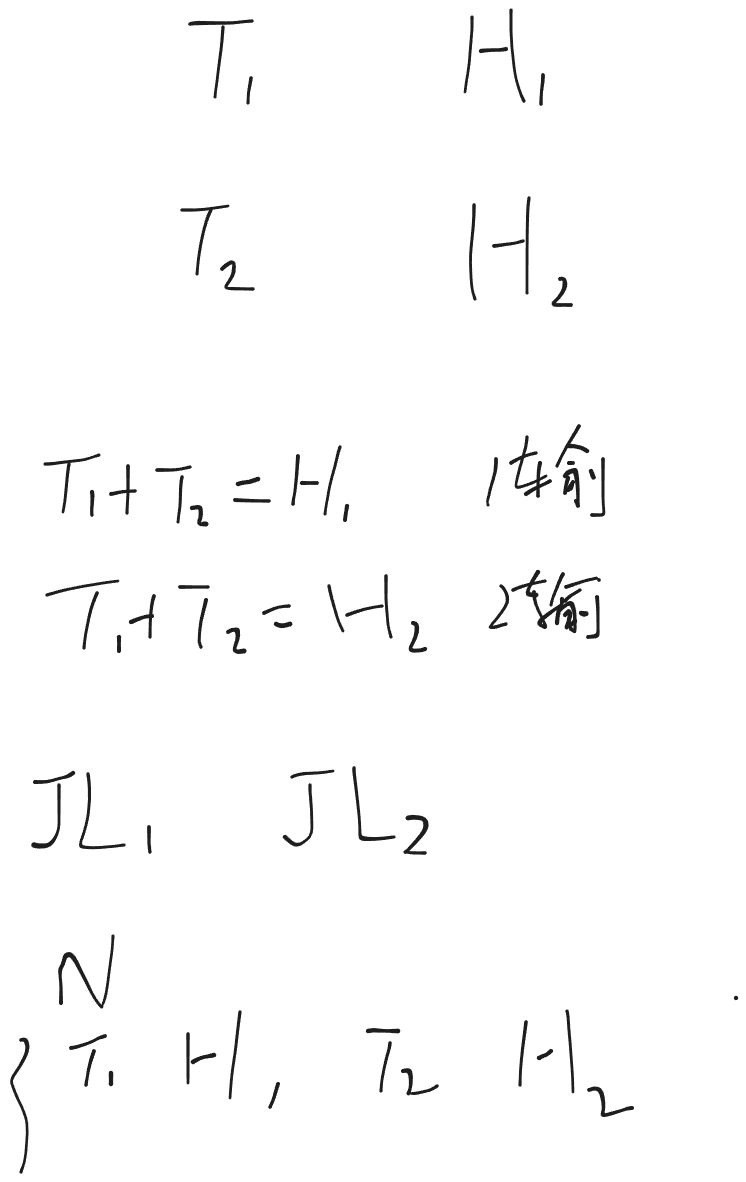 T₁ H₁
T₂ H₂
T₁+T₂=H₁ 1输
T₁+T₂=H₂ 2输
JL₁ JL₂
N
{ T₁ H₁ T₂ H₂